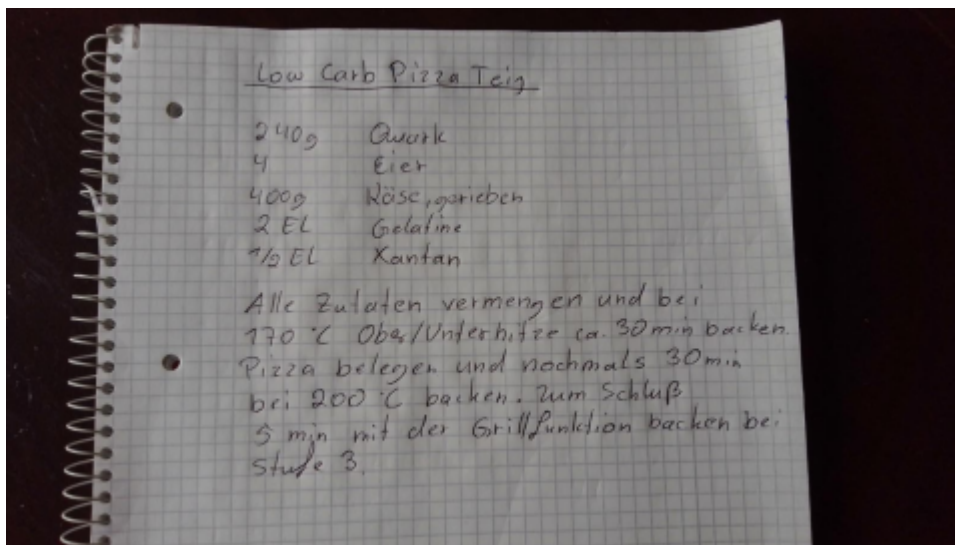 Low Carb Pizza Teig
240g Quark
4 Eier
400g Käse, gerieben
2 EL Gelatine
1/2 EL Xantan
Alle Zutaten vermengen und bei
170 °C Ober/Unterhitze ca. 30 min backen.
Pizza belegen und nochmals 30 min
bei 200 °C backen. Zum Schluß
5 min mit der Grillfunktion backen bei
Stufe 3.